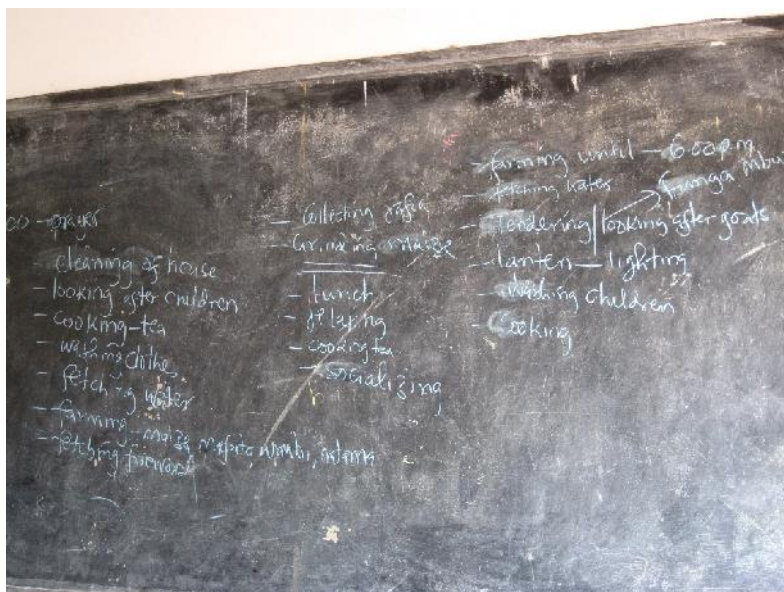 00 - prayer
cleaning of house
- looking after children
- cooking-tea
- washing clothes
- fetching water
- farming - maize, wimbi, mtama
- fetching firewood
- Collecting
- Grinding maize
- Lunch
- cooking tea
- Socializing
- farming until - 6.00pm
- fetching water
- tendering looking after goats
funga mbu
- lanten - lighting
- washing children
- Cooking